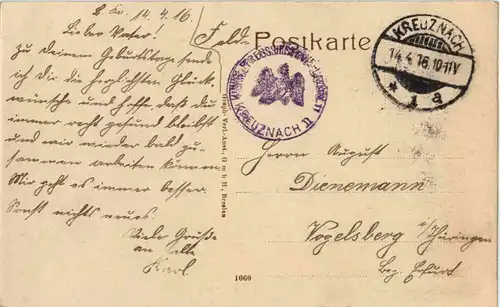 Kr. 14.4.16.
Lieber Vater!
Zu deinem Geburtstag sende
ich dir die herzlichsten Glück-
wünsche und hoffe daß du
immer recht gesund bleibst
und wir wieder bald zu-
sammen arbeiten können
Mir geht es immer besser.
Sonst nichts neues.
Viele Grüße
an alle
Karl
Feld-
Postkarte
KREUZNACH II
KREUZNACH
14.4.16.10-11V
* 1 a
Verl.-Anst. G m b H., Dresden
1060
Herrn August
Dienemann
Vogelsberg i/Thüringen
Bez. Erfurt